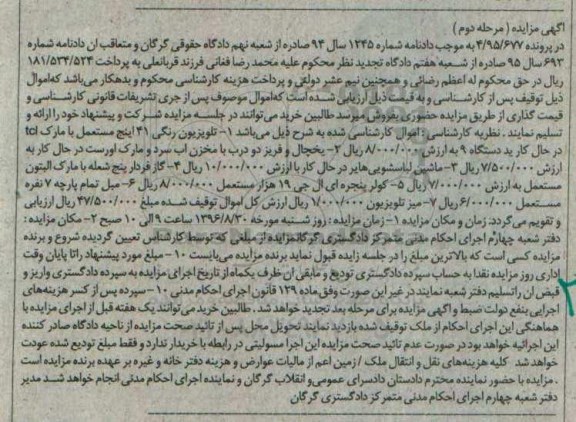 آگهی مزایده (مرحله دوم)
در پرونده ۴/۹۵/۶۷۷ به موجب دادنامه شماره ۱۲۴۵ سال ۹۴ صادره از شعبه نهم دادگاه حقوقی گرگان و متعاقب ان دادنامه شماره
۶۹۳ سال ۹۵ صادره از شعبه هفتم دادگاه تجدید نظر محکوم علیه محمد رضا فغانی فرزند قربانعلی به پرداخت ۱۸۱/۵۳۴/۵۲۴
ریال در حق محکوم له اعظم رضائی و همچنین نیم عشر دولتی و پرداخت هزینه کارشناسی محکوم و بدهکار می باشد که اموال
ذیل توقیف پس از کارشناسی و به قیمت ذیل ارزیابی شده است که اموال موصوف پس از جری تشریفات قانونی کارشناسی و
قیمت گذاری از طریق مزایده حضوری بفروش میرسد طالبین خرید می توانند در جلسه مزایده شرکت و پیشنهاد خود را ارائه و
تسلیم نمایند . نظریه کارشناسی : اموال کارشناسی شده به شرح ذیل می باشد ۱- تلویزیون رنگی ۴۱ اینچ مستعمل با مارک tcl
در حال کار ید دستگاه ۹ به ارزش ۸/۰۰۰/۰۰۰ ریال ۲- یخچال و فریز دو درب با مخزن اب سرد و مارک اورست در حال کار به
ارزش ۷/۵۰۰/۰۰۰ ریال ۳- ماشین لباسشویی هایر در حال کار با ارزش ۱۰/۰۰۰/۰۰۰ ریال ۴- گاز فردار پنج شعله با مارک الیتون
مستعمل به ارزش ۷/۰۰۰/۰۰۰ ریال ۵- کولر پنجره ای ال جی ۱۹ هزار مستعمل ۸/۰۰۰/۰۰۰ ریال ۶- مبل تمام پارچه ۷ نفره
مستعمل ۶/۰۰۰/۰۰۰ ریال ۷- میز تلویزیون ۱/۰۰۰/۰۰۰ ریال ارزش کل اموال توقیف شده مبلغ ۴۷/۵۰۰/۰۰۰ ریال ارزیابی
و تقویم می گردد: زمان و مکان مزایده ۱- زمان مزایده : روز شنبه مورخه ۱۳۹۶/۸/۲۰ ساعت ۹ الی ۱۰ صبح ۲- مکان مزایده :
دفتر شعبه چهارم اجرای احکام مدنی متمرکز دادگستری گرگان مزایده از مبلغی که توسط کارشناس تعیین گردیده شروع و برنده
مزایده کسی است که بالاترین مبلغ را در جلسه زایده قبول نماید برنده مزایده می بایست ۱۰- مبلغ مورد پیشنهاد راتا پایان وقت
اداری روز مزایده نقدا به حساب سپرده دادگستری تودیع و مابقی ان ظرف یکماه از تاریخ اجرای مزایده به سپرده دادگستری واریز و
قبض ان راتسلیم دفتر شعبه نمایند در غیر این صورت وفق ماده ۱۲۹ قانون اجرای احکام مدنی ۱۰- سپرده پس از کسر هزینه های
اجرایی بنفع دولت ضبط و اگهی مزایده برای مرحله بعد تجدید خواهد شد . طالبین خرید می توانند یک هفته قبل از اجرای مزایده با
هماهنگی این اجرای احکام از ملک توقیف شده بازدید نمایند تحویل محل پس از تائید صحت مزایده از ناحیه دادگاه صادر کننده
این اجرائیه خواهد بود در صورت عدم تائید صحت مزایده این اجرا مسولیتی در رابطه با خریدار ندارد و فقط مبلغ تودیع شده عودت
خواهد شد کلیه هزینه های نقل و انتقال ملک / زمین اعم از مالیات عوارض و هزینه دفتر خانه و غیره بر عهده برنده مزایده است
. مزایده با حضور نماینده محترم دادستان دادسرای عمومی و انقلاب گرگان و نماینده اجرای احکام مدنی انجام خواهد شد مدیر
دفتر شعبه چهارم اجرای احکام مدنی متمرکز دادگستری گرگان